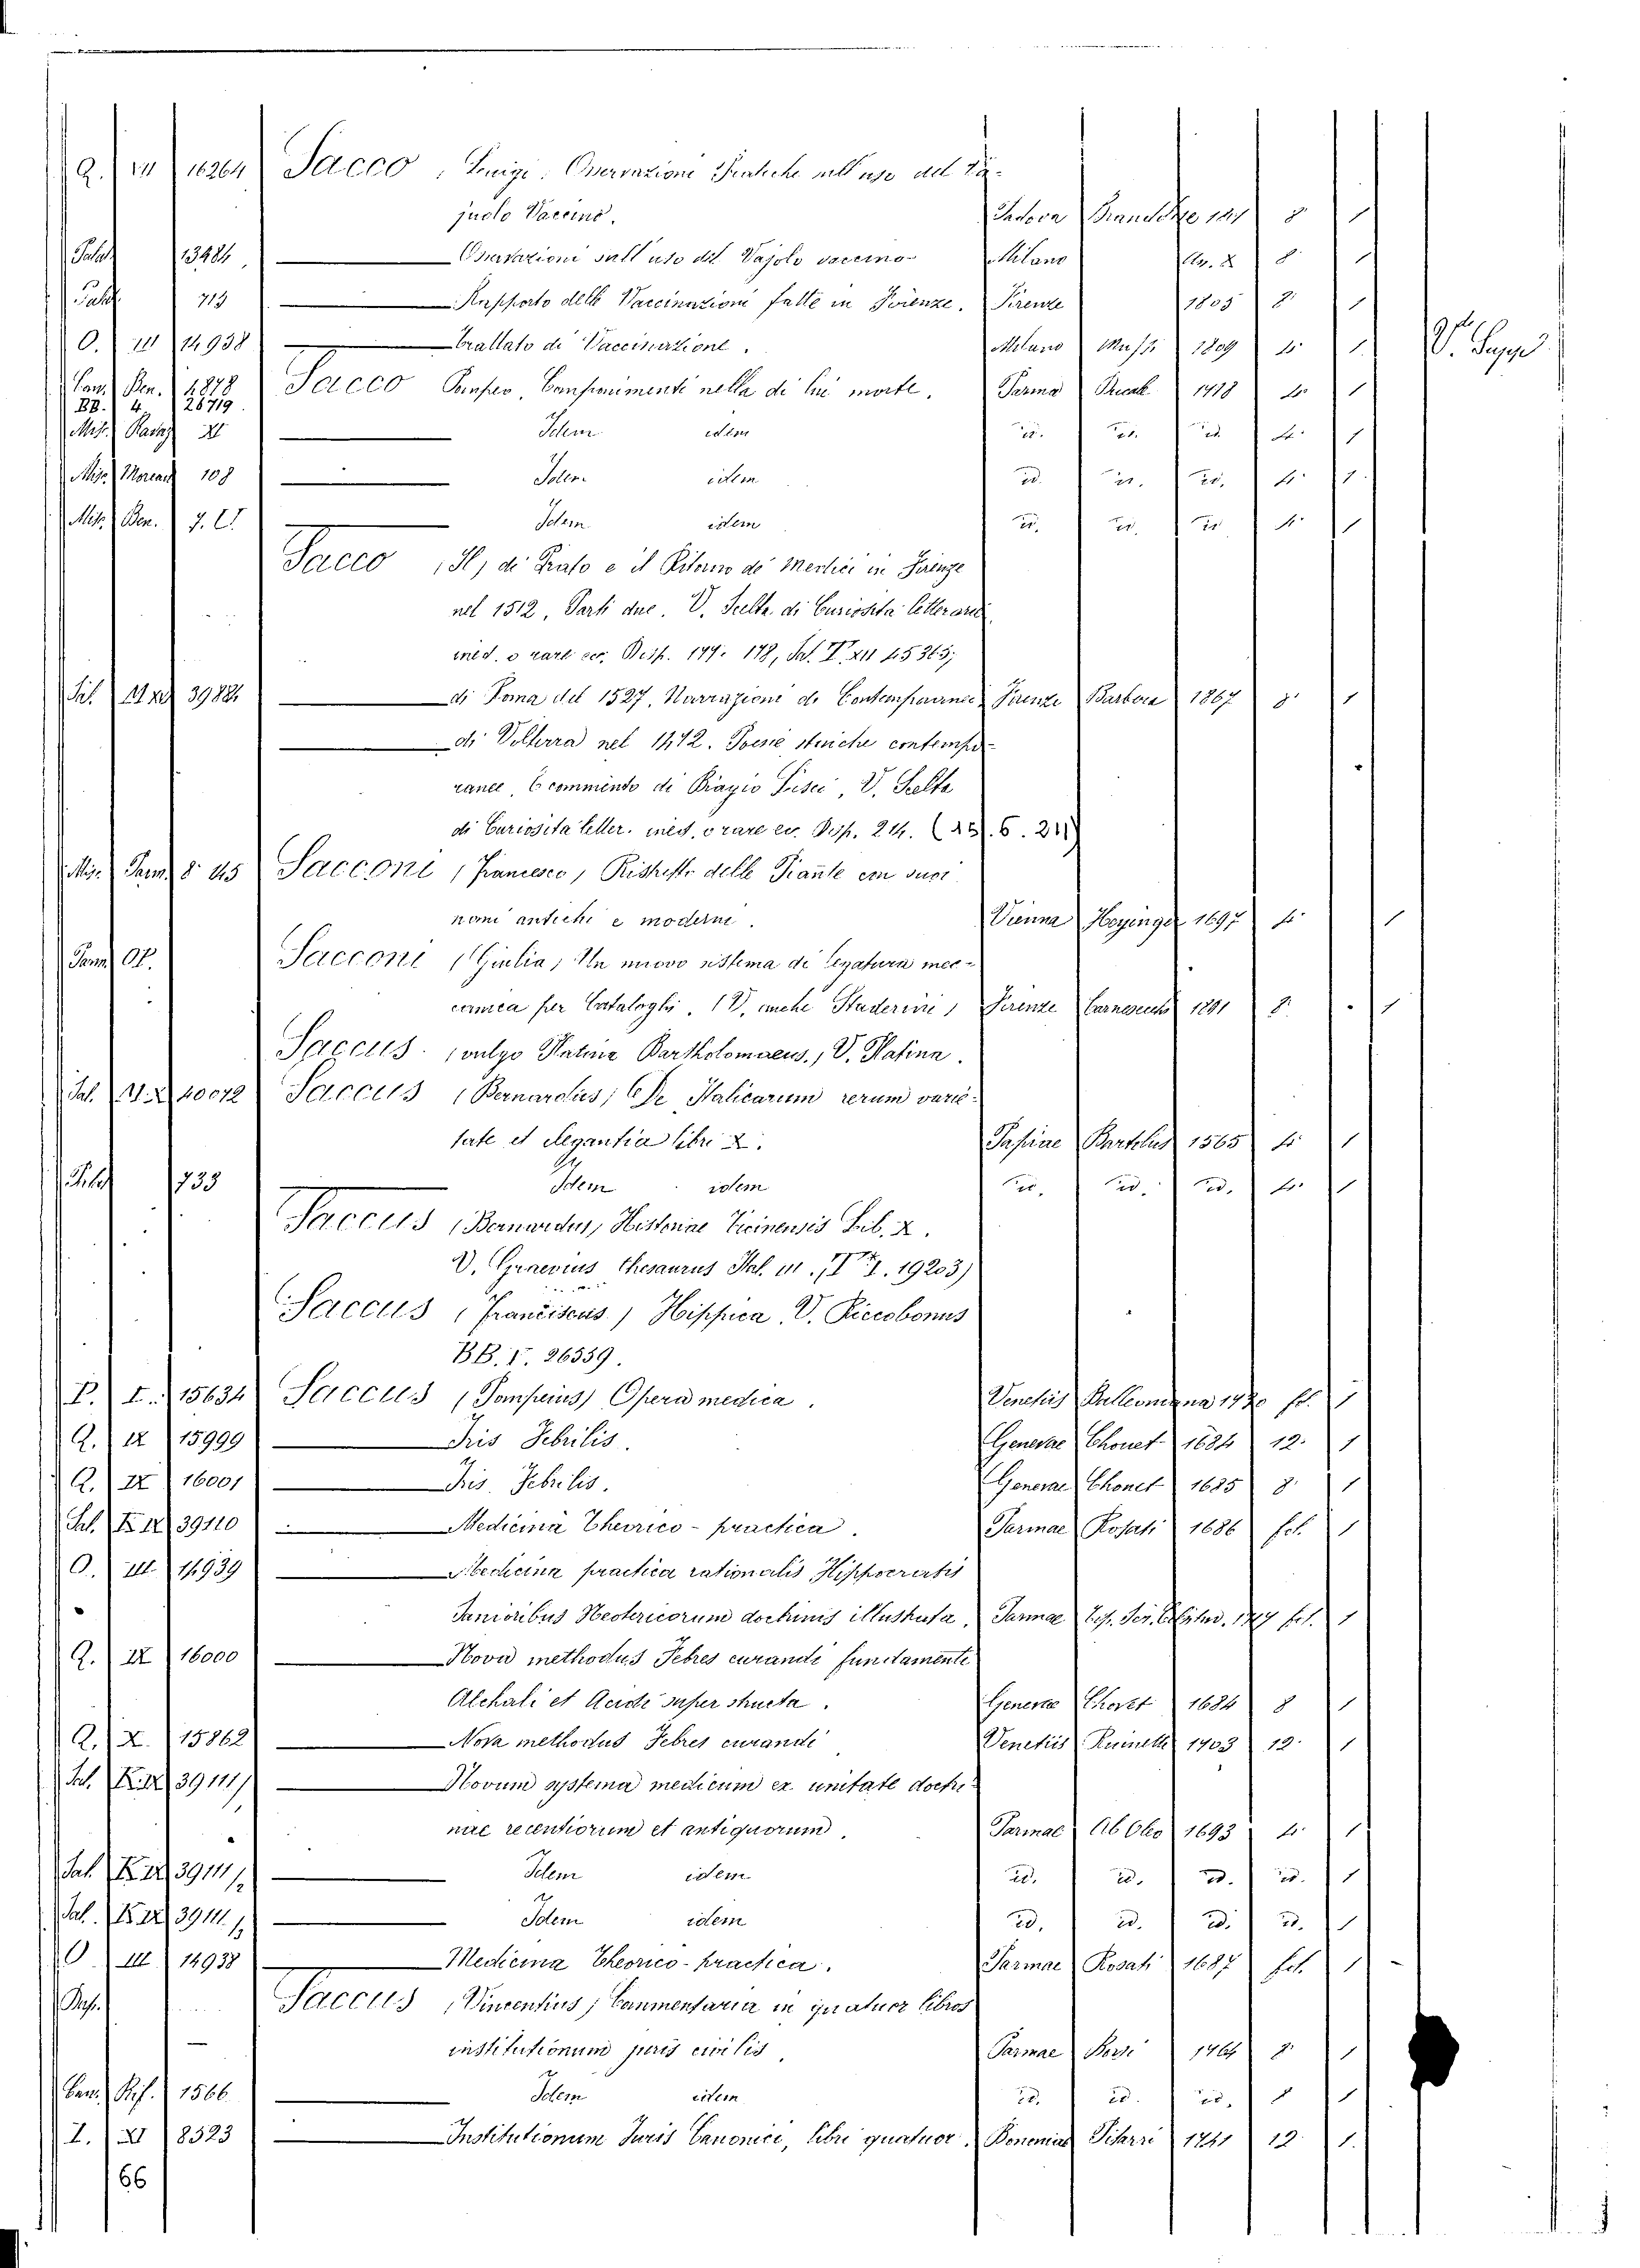 Q. VII 16264 Sacco, Luigi. Osservazioni Pratiche sull'uso del Va-
juolo Vaccino. Padova 8 1
Palat 13984 Osservazioni sull'uso del Vajolo vaccino Milano An. X 8 1
Palat 713 Rapporto delle Vaccinazioni fatte in Firenze. Firenze 1805 8 1
O. III 14938 Trattato di Vaccinazione. Milano 1809 4 1 V. Suppl
Sacco Pompeo, Componimenti nella di lui morte. Parma 4 1
BB. 4 26719
Misc. XI Idem idem id. id. id. 4 1
Misc. 108 Idem idem id. id. id. 4 1
Misc. Ben. Idem idem id. id. id. 4 1
Sacco (Il) di Prato e il Ritorno de' Medici in Firenze
nel 1512, Parti due. V. Scelta di Curiosità letterarie
ined. o rare ecc. Disp. 177. 178,
Sal. 3988 di Roma del 1527, Narrazioni de Contemporanei Firenze Barbera 1867 8 1
di Volterra nel 1472. Poesie storiche contempo-
ranee, e commento di Biagio Lisci, V. Scelta
di Curiosità letter. ined. o rare ec. Disp.
Misc. Parm. 8. 45 Sacconi (Francesco) Ristretto delle Piante con suoi
nomi antichi e moderni. Vienna Heyinger 1697 4 1
Parm. Sacconi (Giulia) Un nuovo sistema di legatura mec-
canica per Cataloghi. (V. anche Staderini) Firenze Carnesecchi 1891 8 1
Saccus (vulgo Platina Bartholomaeus.) V. Platina.
Sal. 40072 Saccus (Bernardus) De Italicarum rerum varie-
tate et elegantia libri X. Papiae Bartolus 1565 4 1
Palat 733 Idem idem id. id. id. 4 1
Saccus (Bernardus) Historiae Ticinensis Lib. X.
V. Graevius Thesaurus Ital. III. 19203)
Saccus (Franciscus) Hippica V. Piccobonus
BB. V. 26539.
P. I. 15634 Saccus (Pompeius) Opera medica. Venetiis Balleoniana 1730 fol. 1
Q. IX 15999 Iris Febrilis. Genevae Chouet 1684 12. 1
Q. IX 16001 Iris Febrilis. Genevae Chouet 1685 8 1
Sal. K. IX 39110 Medicina Theorico-practica. Parmae Rosati 1686 fol. 1
O. III 14939 Medicina practica rationalis Hippocratis
Sanioribus Neotericorum doctrinis illustrata. Parmae fol. 1
Q. IX 16000 Nova methodus Febres curandi fundamentis
Alchali et Acidi super structa. Genevae Chouet 1684 8 1
Q. X. 15862 Nova methodus Febres curandi Venetiis 1703 12. 1
Sal. K. IX 39111/ Novum systema medicum ex unitate doctri-
nae recentiorum et antiquorum. Parmae Ab Oleo 1693 4 1
Sal. K. IX 39111/2 Idem idem id. id. id. id. 1
Sal. K. IX 39111 Idem idem id. id. id. id. 1
O III 14938 Medicina Theorico-practica. Parmae Rosati 1687 fol. 1
Saccus (Vincentius) Commentaria in quatuor libros
institutionum juris civilis. Parmae 8 1
1566 Idem idem id. id. id. 8 1
I. XI 8523 Institutionum Juris Canonici, libri quatuor. Bononiae Pisarri 1741 12 1.
66